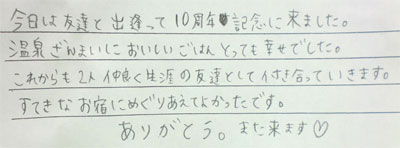 今日は友達と出逢って10周年記念に来ました。
温泉ざんまいにおいしいごはんとっても幸せでした。
これからも2人仲良く生涯の友達として付き合っていきます。
すてきなお宿にめぐりあえてよかったです。
ありがとう。また来ます♡